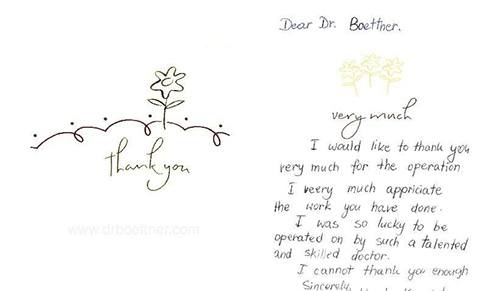 thank you
www.drboettner.com
Dear Dr. Boettner.
very much
I would like to thank you
very much for the operation
I veery much appriciate
the work you have done.
I was so lucky to be
operated on by such a talented
and skilled doctor.
I cannot thank you enough
Sincerely,